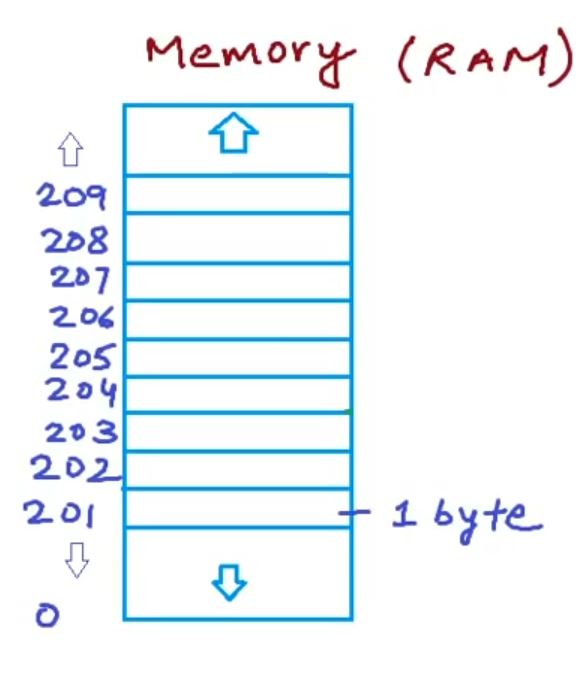 Memory (RAM)
209
208
207
206
205
204
203
202
201 1 byte
0